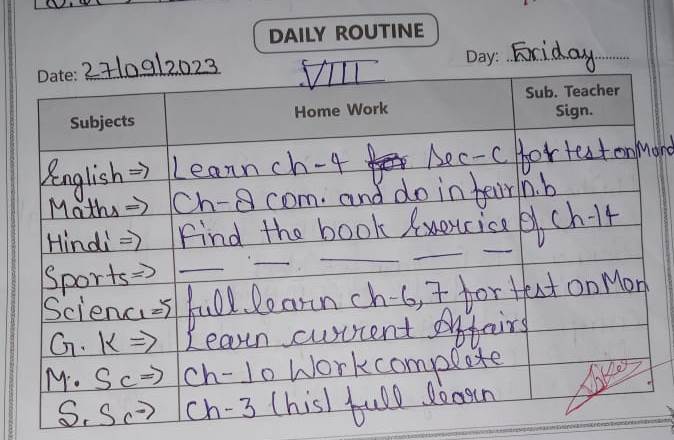 DAILY ROUTINE
Date: 27/09/2023 VIII Day: Friday
Subjects Home Work Sub. Teacher Sign.
English => Learn ch-4 Sec-C for test on Mond
Maths => Ch-8 com. and do in fair n.b
Hindi => Find the book Exercice of Ch-14
Sports=> — — — — —
Science => full learn ch-6,7 for test on Mon
G.K => Learn current Affairs
M.Sc => Ch-10 Work complete
S.Sc=> Ch-3 (his) full learn